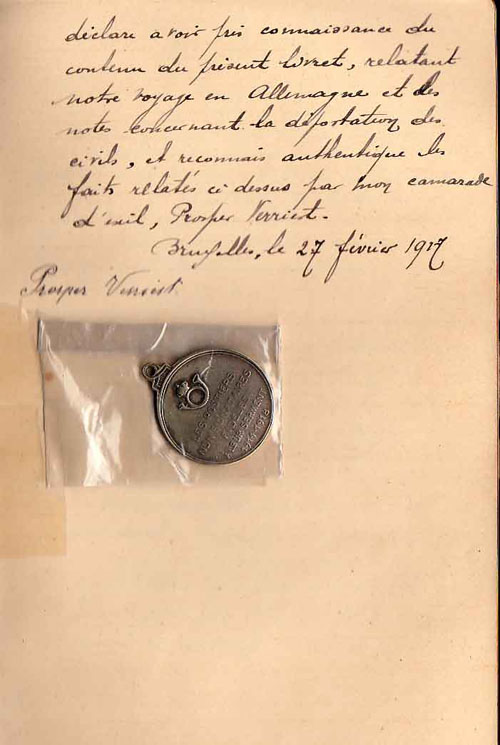 déclare avoir pris connaissance du
contenu du présent livret, relatant
notre voyage en Allemagne et des
notes concernant la déportation des
civils, et reconnais authentique les
faits relatés ci dessus par mon camarade
d'exil, Prosper Verriest.
Bruxelles, le 27 février 1917
Prosper Verriest
LES POSTIERS